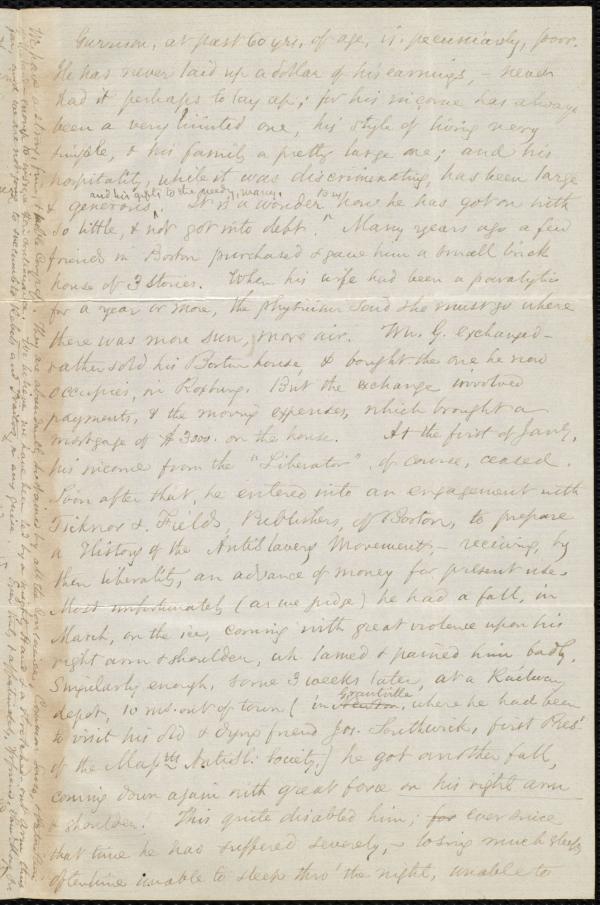 Garrison, at past 60 yrs. of age, is peculiarly poor.
He has never laid up a dollar of his earnings, - never
had it perhaps to lay up; for his income has always
been a very limited one, his style of living very
simple, & his family a pretty large one; and his
hospitality, while it was discriminating, has been large
and his gifts to the needy, many.
& generous. It is a wonder how he has got on with
so little, & not got into debt. Many years ago a few
friends in Boston purchased & gave him a small brick
house of 3 stories. When his wife had been a paralytic
for a year or more, the physician said she must go where
there was more sun, more air. Wm. G. exchanged -
rather sold his Boston house, & bought the one he now
occupies, in Roxbury. But the exchange involved
payments, & the moving expenses, which brought a
mortgage of $3000. on the house. At the first of Jany,
his income from the "Liberator", of course, ceased.
Soon after that, he entered into an engagement with
Ticknor & Fields, Publishers, of Boston, to prepare
a History of the AntiSlavery Movement, - receiving, by
their liberality, an advance of money for present use.
Most unfortunately (as we judge) he had a fall, in
March, on the ice, coming with great violence upon his
right arm & shoulder, wh lamed & pained him badly.
Singularly enough, some 3 weeks later, at a Railway
Grantville,
depot, 10 ms. out of town (in Newton, where he had been
to visit his old & dying friend Jos. Southwick, first Pres't
of the Massts Antisl: Society,) he got another fall,
coming down again with great force on his right arm
& shoulder! This quite disabled him; for ever since
that time he has suffered severely, - losing much sleep,
oftentime unable to sleep thro' the night, unable to
We have a strong, firm
They are abundantly sustained by all the
we have been led by a mighty Hand & a stretched out arm thus
Rebels and Traitors, in any guise